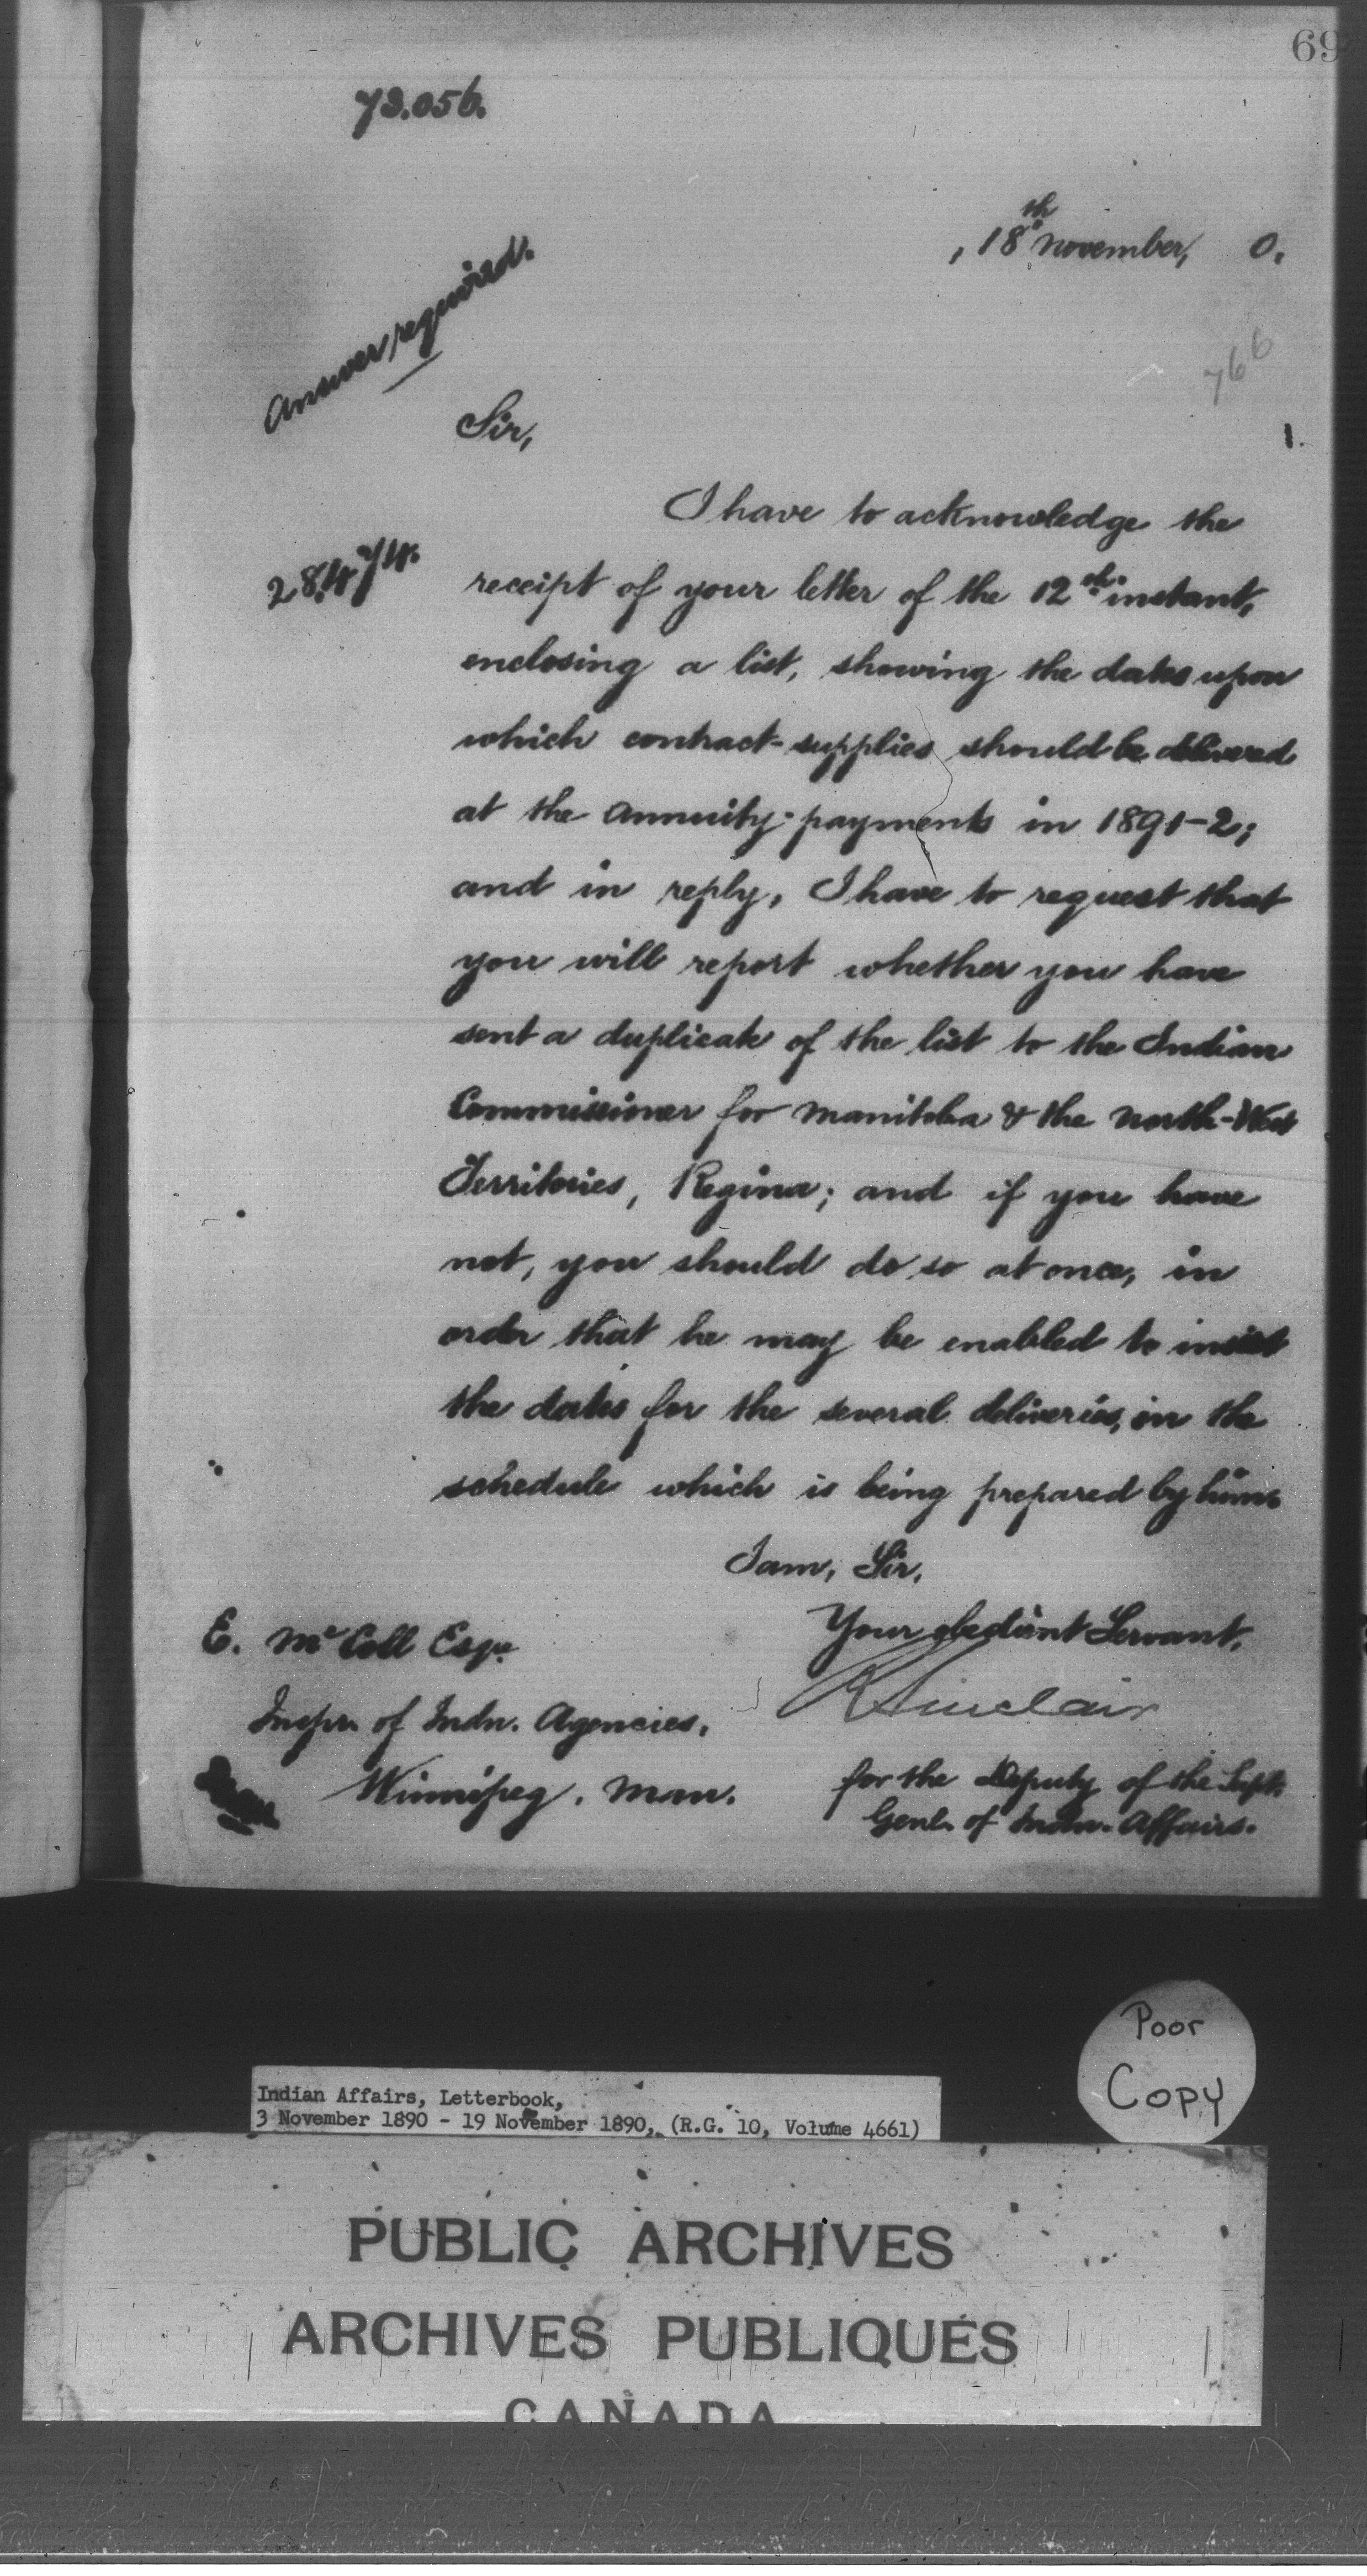 69
73.056.
, 18th November, 0.
Answer required.
766
Sir,
1.
I have to acknowledge the
28474.
receipt of your letter of the 12th instant,
enclosing a list, showing the dates upon
which contract-supplies should be delivered
at the Annuity-payments in 1891-2;
and in reply, I have to request that
you will report whether you have
sent a duplicate of the list to the Indian
Commissioner for Manitoba & the North-West
Territories, Regina; and if you have
not, you should do so at once, in
order that he may be enabled to insert
the dates for the several deliveries, in the
schedule which is being prepared by him.
I am, Sir,
Your obedient Servant,
E. McColl Esqr.
R Sinclair
Inspr. of Indn. Agencies,
Winnipeg. Man.
for the Deputy of the Supt.
Genl. of Indn. Affairs.
Poor
Copy
Indian Affairs, Letterbook,
3 November 1890 - 19 November 1890, (R.G. 10, Volume 4661)
PUBLIC ARCHIVES
ARCHIVES PUBLIQUES
CANADA